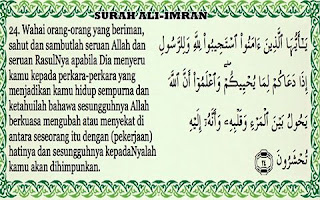 SURAH ALI-IMRAN
24. Wahai orang-orang yang beriman,
sahut dan sambutlah seruan Allah dan
seruan RasulNya apabila Dia menyeru
kamu kepada perkara-perkara yang
menjadikan kamu hidup sempurna dan
ketahuilah bahawa sesungguhnya Allah
berkuasa mengubah atau menyekat di
antara seseorang itu dengan (pekerjaan)
hatinya dan sesungguhnya kepadaNyalah
kamu akan dihimpunkan.
يَـٰٓأَيُّهَا ٱلَّذِينَ ءَامَنُوا۟ ٱسْتَجِيبُوا۟ لِلَّهِ وَلِلرَّسُولِ
إِذَا دَعَاكُمْ لِمَا يُحْيِيكُمْ ۖ وَٱعْلَمُوٓا۟ أَنَّ ٱللَّهَ
يَحُولُ بَيْنَ ٱلْمَرْءِ وَقَلْبِهِۦ وَأَنَّهُۥٓ إِلَيْهِ
تُحْشَرُونَ ٢٤